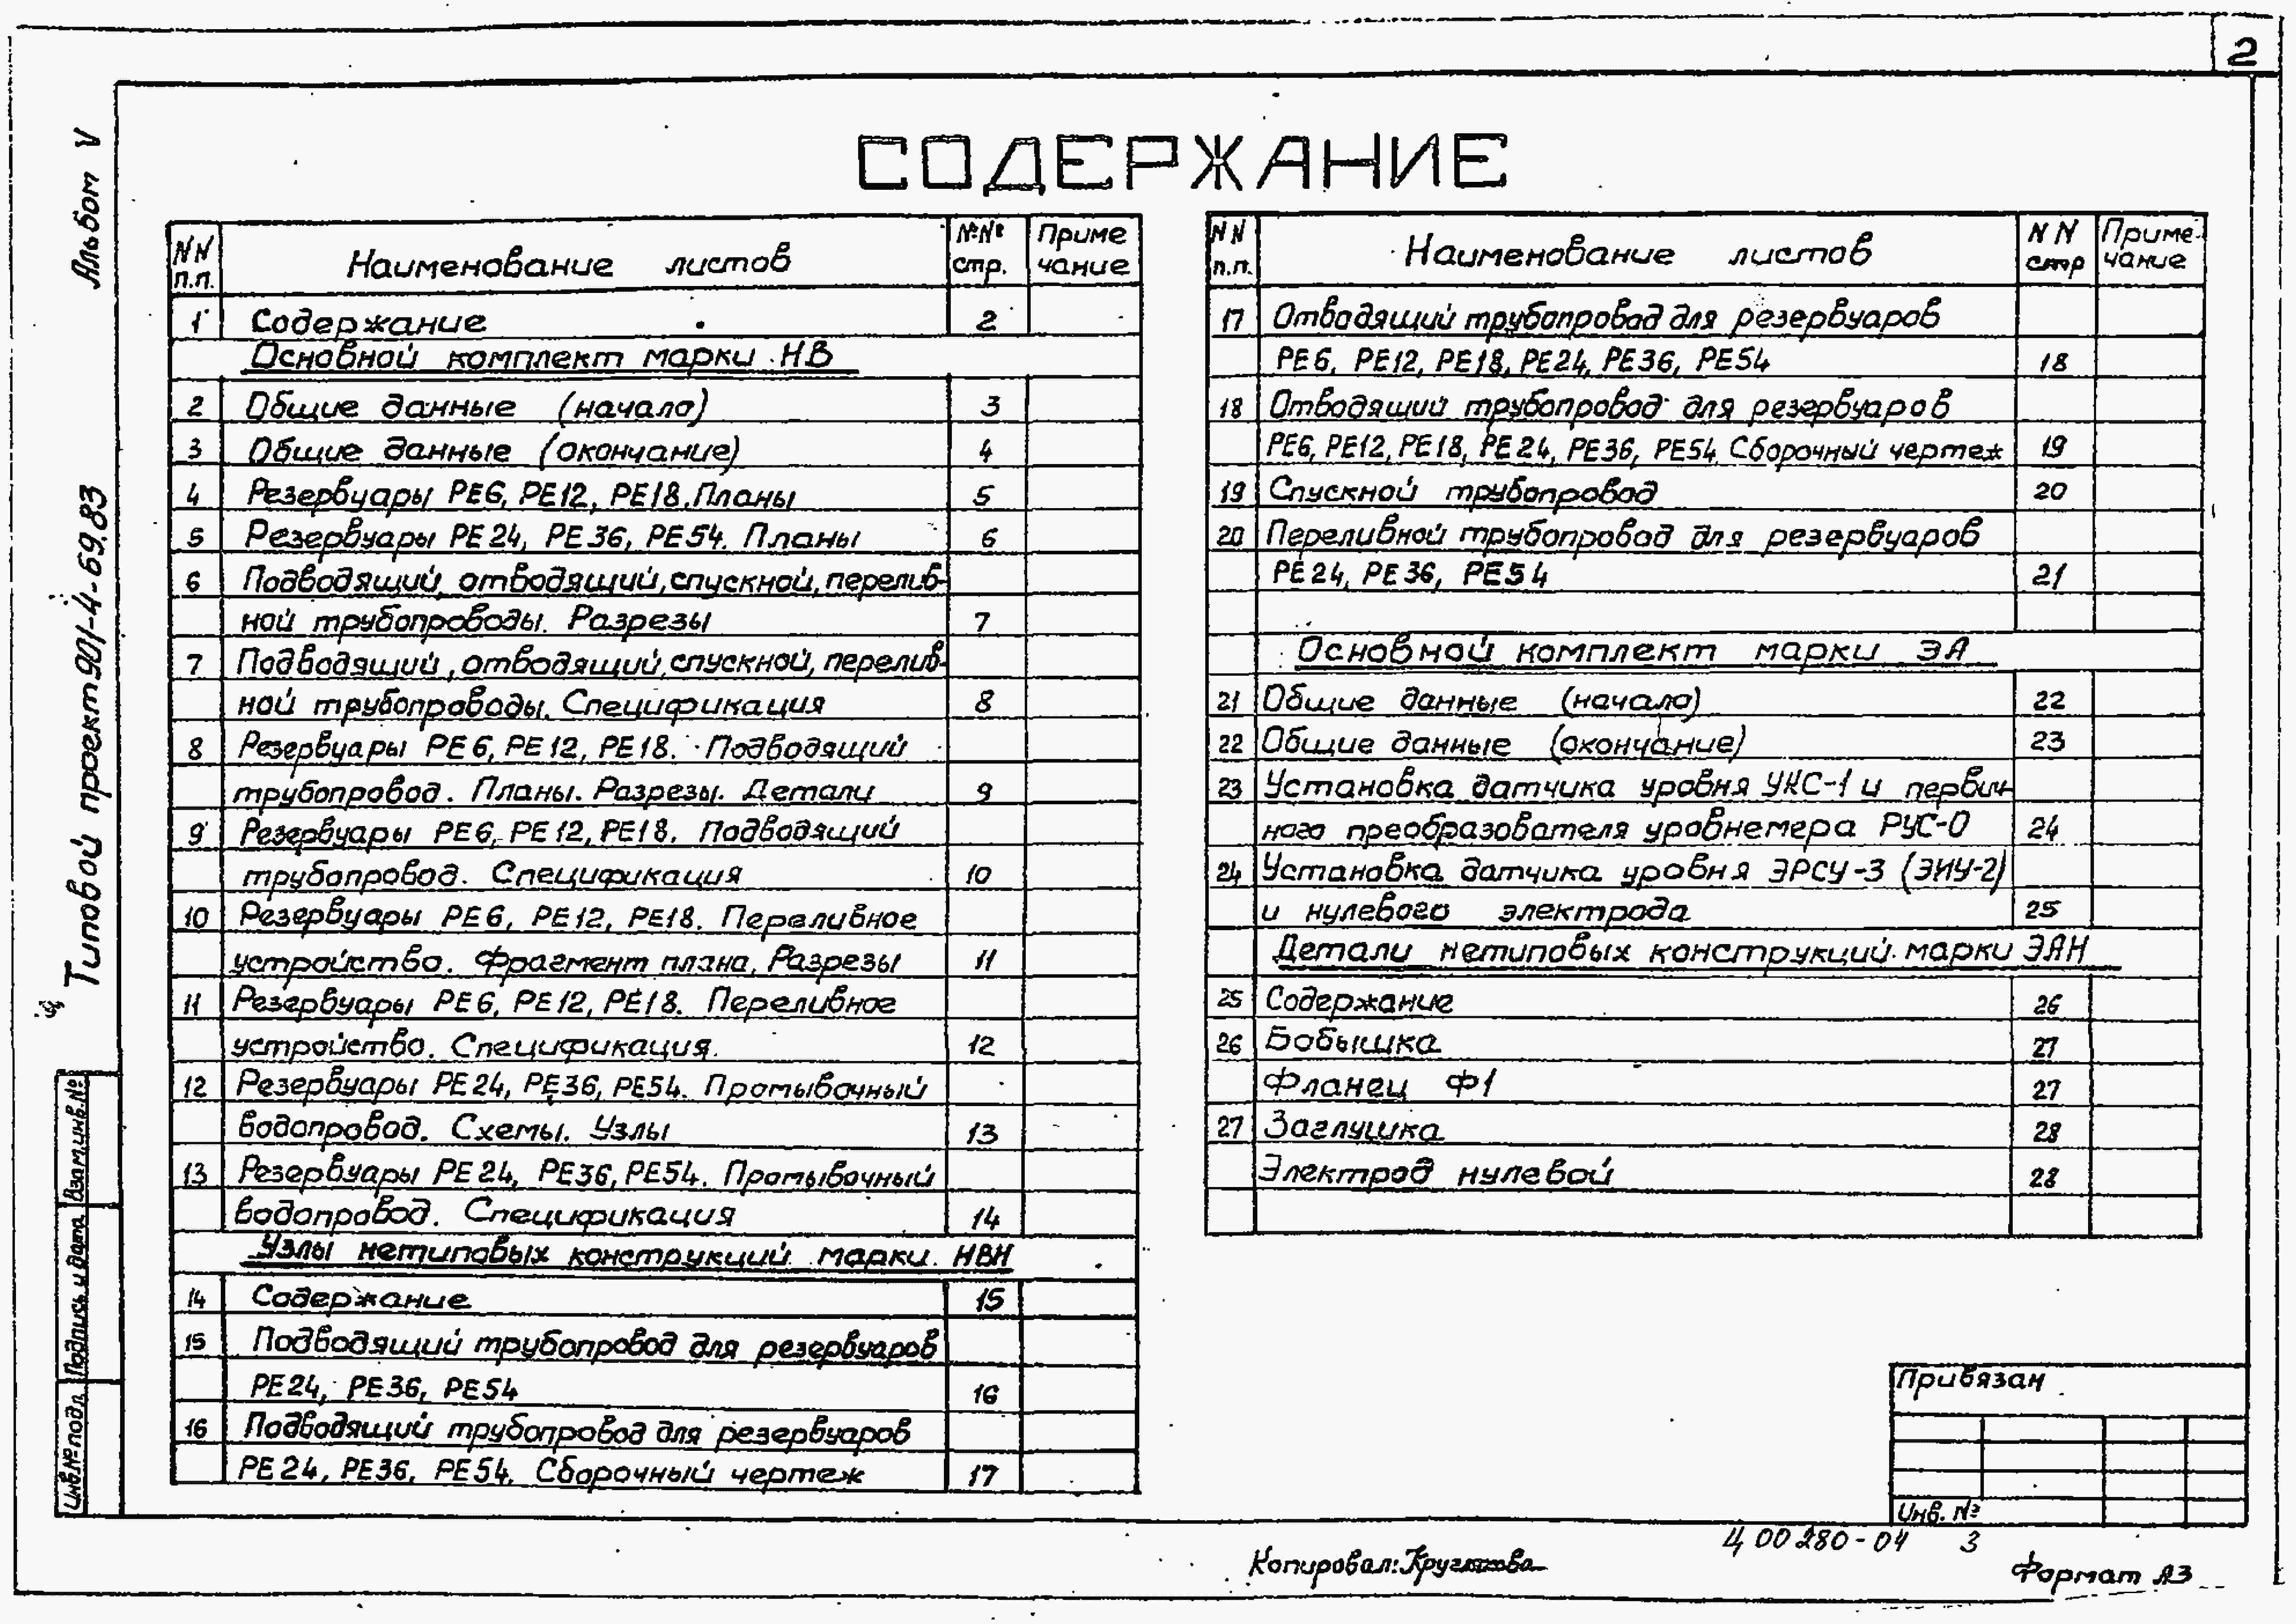 2
СОДЕРЖАНИЕ
Альбом V
Типовой проект 901-4-69.83
NN п.п. Наименование листов №№ стр. Приме чание
1 Содержание 2
Основной комплект марки НВ
2 Общие данные (начало) 3
3 Общие данные (окончание) 4
4 Резервуары РЕ6, РЕ12, РЕ18. Планы 5
5 Резервуары РЕ24, РЕ36, РЕ54. Планы 6
6 Подводящий, отводящий, спускной, перелив-
ной трубопроводы. Разрезы 7
7 Подводящий, отводящий, спускной, перелив-
ной трубопроводы. Спецификация 8
8 Резервуары РЕ6, РЕ12, РЕ18. Подводящий
трубопровод. Планы. Разрезы. Детали 9
9 Резервуары РЕ6, РЕ12, РЕ18. Подводящий
трубопровод. Спецификация 10
10 Резервуары РЕ6, РЕ12, РЕ18. Переливное
устройство. Фрагмент плана, Разрезы 11
11 Резервуары РЕ6, РЕ12, РЕ18. Переливное
устройство. Спецификация. 12
12 Резервуары РЕ24, РЕ36, РЕ54. Промывочный
водопровод. Схемы. Узлы 13
13 Резервуары РЕ24, РЕ36, РЕ54. Промывочный
водопровод. Спецификация 14
Узлы нетиповых конструкций марки НВН
14 Содержание 15
15 Подводящий трубопровод для резервуаров
РЕ24, РЕ36, РЕ54 16
16 Подводящий трубопровод для резервуаров
РЕ24, РЕ36, РЕ54. Сборочный чертеж 17
NN п.п. Наименование листов NN стр Приме- чание
17 Отводящий трубопровод для резервуаров
РЕ6, РЕ12, РЕ18, РЕ24, РЕ36, РЕ54 18
18 Отводящий трубопровод для резервуаров
РЕ6, РЕ12, РЕ18, РЕ24, РЕ36, РЕ54 Сборочный чертеж 19
19 Спускной трубопровод 20
20 Переливной трубопровод для резервуаров
РЕ24, РЕ36, РЕ54 21
Основной комплект марки ЭА
21 Общие данные (начало) 22
22 Общие данные (окончание) 23
23 Установка датчика уровня УКС-1 и первич-
ного преобразователя уровнемера РУС-0 24
24 Установка датчика уровня ЭРСУ-3 (ЭИУ-2)
и нулевого электрода 25
Детали нетиповых конструкций марки ЭАН
25 Содержание 26
26 Бобышка 27
Фланец Ф1 27
27 Заглушка 28
Электрод нулевой 28
Взам.инв.№
Подпись и дата
Инв.№ подл.
Привязан
Инв. №
Ц 00280-04 3
Копировал:
Формат А3